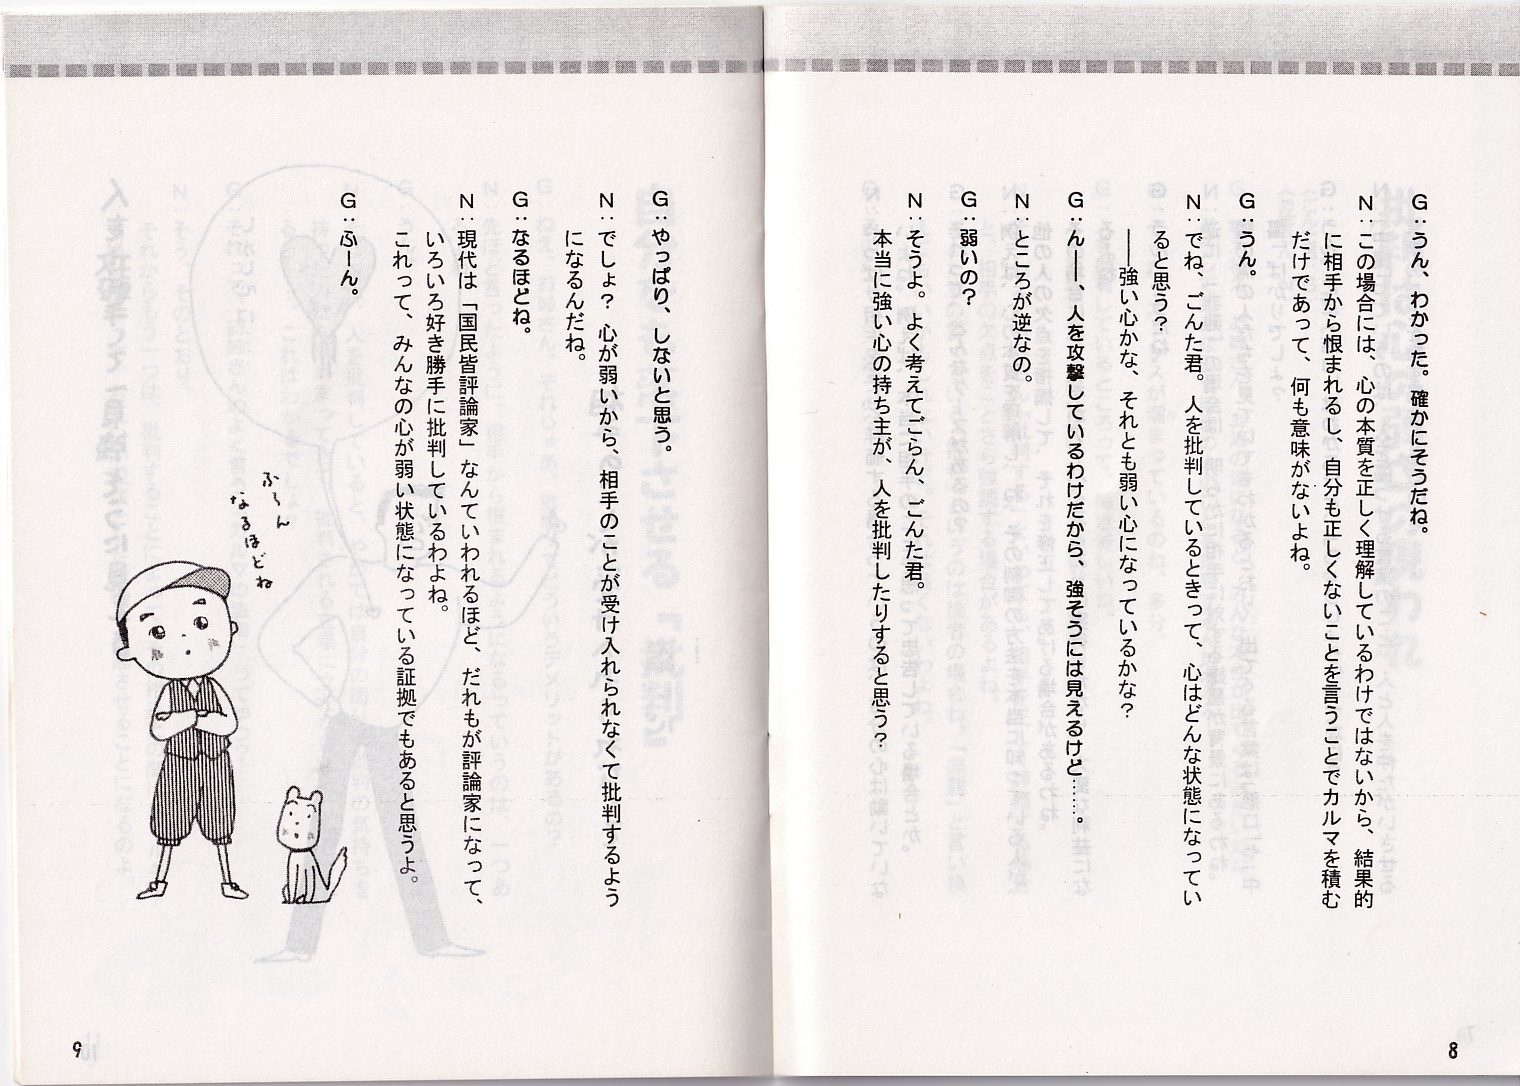 G：うん、わかった。確かにそうだね。
N：この場合には、心の本質を正しく理解しているわけではないから、結果的
に相手から恨まれるし、自分も正しくないことを言うことでカルマを積む
だけであって、何も意味がないよね。
G：うん。
N：でね、ごんた君。人を批判しているときって、心はどんな状態になってい
ると思う？
――強い心かな、それとも弱い心になっているかな？
G：ん――、人を攻撃しているわけだから、強そうには見えるけど……。
N：ところが逆なの。
G：弱いの？
N：そうよ。よく考えてごらん、ごんた君。
本当に強い心の持ち主が、人を批判したりすると思う？
8
G：やっぱり、しないと思う。
N：でしょ？ 心が弱いから、相手のことが受け入れられなくて批判するよう
になるんだね。
G：なるほどね。
N：現代は「国民皆評論家」なんていわれるほど、だれもが評論家になって、
いろいろ好き勝手に批判しているわよね。
これって、みんなの心が弱い状態になっている証拠でもあると思うよ。
G：ふーん。
ふ〜ん
なるほどね
9